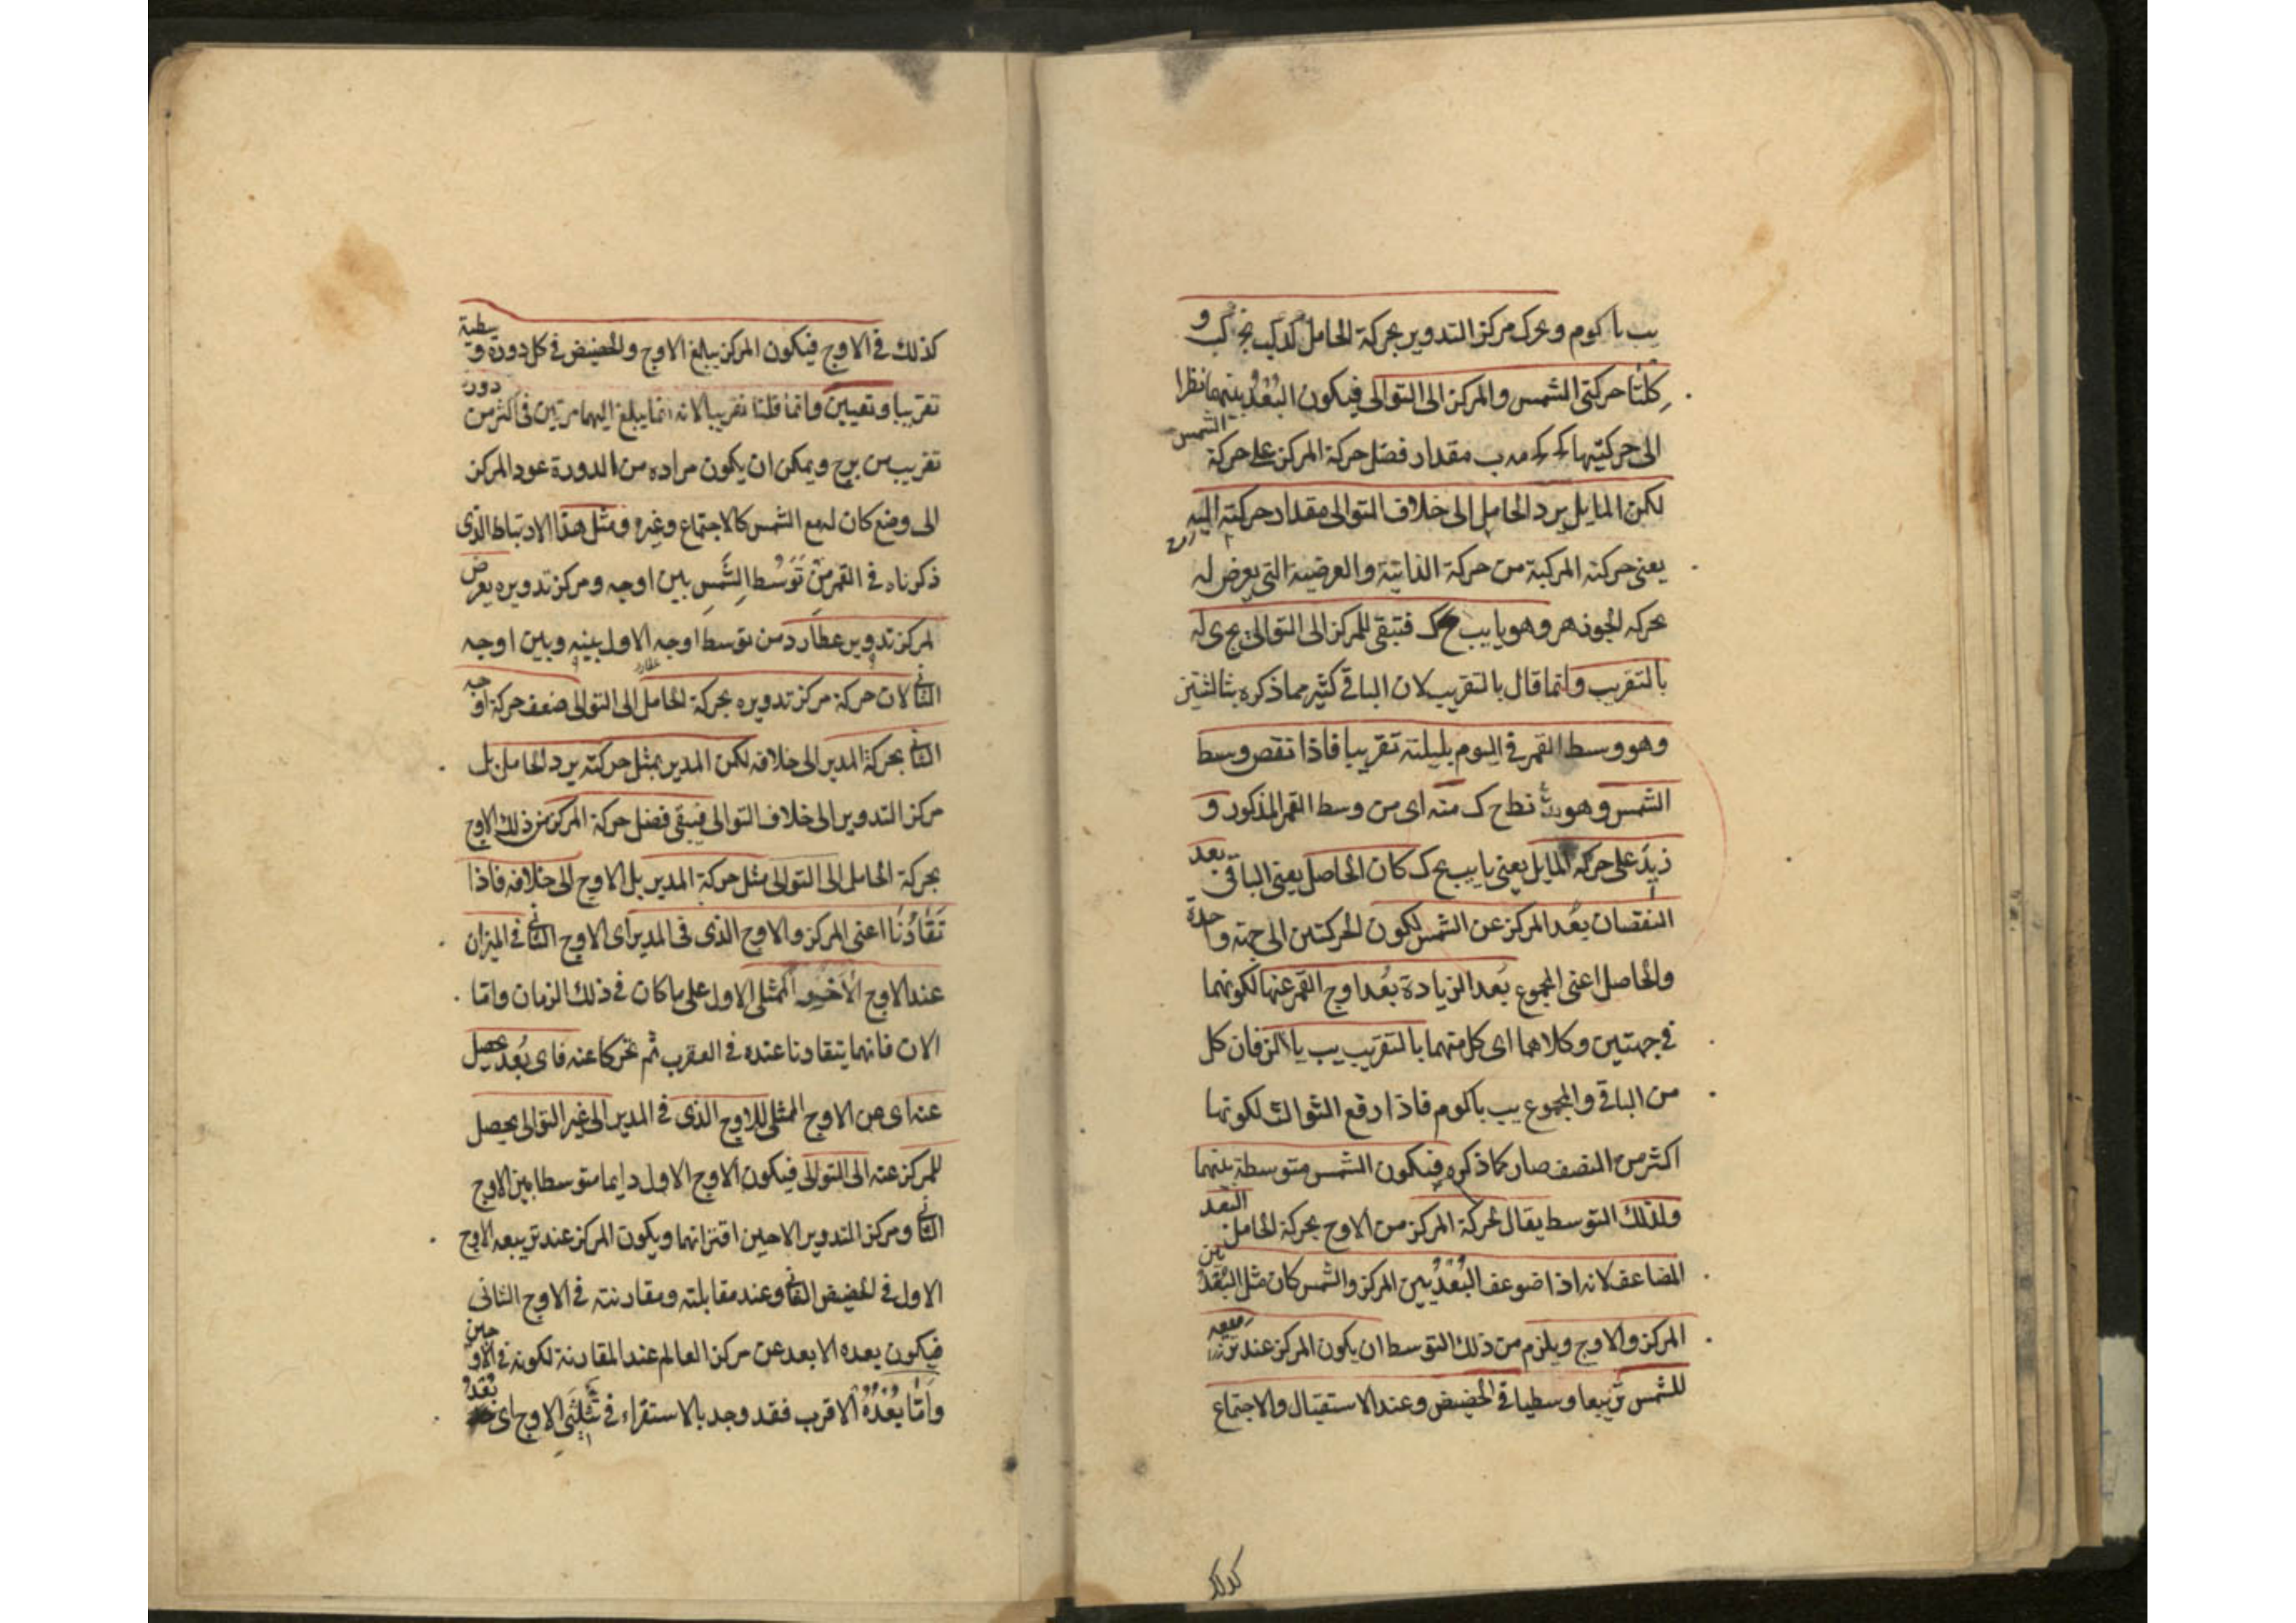 يب يا كوم وتحرك مركز التدوير بحركة الحامل كد كب نج كب و
كلتا حركتي الشمس والمركز الى التوالى فيكون البُعْدُ بينهما نظرا
الى حركتيهما مقدار فضل حركة المركز على حركة الشمس
لكن المايل يرد الحامل الى خلاف التوالى مقدار حركته اليه
يعنى حركته المركبة من حركة الذاتية والعرضية التى يعرض له
بحركه الجوذهر وهو يا يب يح ك فتبقى للمركز الى التوالى يج ى له
بالتقريب وانما قال بالتقريب لان الباقى كثير مما ذكره بثالثتين
وهو وسط القمر فى اليوم بليلته تقريبا فاذا نقص وسط
الشمس وهو نط ح ك منه اى من وسط القمر المذكور و
زيدَ على حركة المايل يعنى يا يب يح ك كان الحاصل يعنى الباقى بعد
النقصان بُعْد المركز عن الشمس لكون الحركتين الى جهة واحدة
والحاصل اعنى المجموع بَعد الزيادة بُعْد اوج القمر عنها لكونهما
فى جهتين وكلاهما اى كل منهما بالتقريب يب يا كز فان كل
من الباقى والمجموع يب يا كوم فاذا رفع الثوالث لكونها
اكثر من النصف صار كما ذكره فيكون الشمس متوسطة بينهما
ولذلك التوسط يقال لحركة المركز من الاوج بحركة الحامل البعد
المضاعف لانه اذا ضوعف البُعْدُ بين المركز والشمس كان مثل البُعْد بين
المركز والاوج ويلزم من ذلك التوسط ان يكون المركز عند تربيعه
للشمس تربيعا وسطيا فى الحضيض وعند الاستقبال والاجتماع
كذلك
كذلك فى الاوج فيكون المركز يبلغ الاوج والحضيض فى كل دورة وسطية
تقريبا وتعيين وانما قلنا تقريبا لانه انما يبلغ اليهما مرتين فى اكثر من دورة
تقريب من برج ويمكن ان يكون مراده من الدورة عود المركز
الى وضع كان له مع الشمس كالاجتماع وغيره ومثل هذا الارتباط الذى
ذكرناه فى القمر مِن تَوَسُّط الشَّمْسِ بين اوجه ومركز تدويره يعرض
لمركز تدوير عطارد من توسط اوجه الاول بينه وبين اوجه
الثانى لان حركة مركز تدويره بحركة الحامل الى التوالى ضعف حركة اوجه
الثانى بحركة المدير الى خلافه لكن المدير بمثل حركته يرد الحامل بل
مركز التدوير الى خلاف التوالى فيبقى فضل حركة المركز من ذلك الاوج
بحركة الحامل الى التوالى مثل حركة المدير بل الاوج الى خلافه فاذا
تَقَارُنَا اعنى المركز والاوج الذى فى المدير اى الاوج الثانى فى الميزان
عند الاوج الآخر الممثلى الاول على ما كان فى ذلك الزمان واما
الان فانهما يتقارنا عنده فى العقرب ثم تحركا عنه فاى بُعْد حصل
عنه اى من الاوج الممثلى للاوج الذى فى المدير الى غير التوالى يحصل
للمركز عنه الى التوالى فيكون الاوج الاول دايما متوسطا بين الاوج
الثانى ومركز التدوير الا حين اقترانهما ويكون المركز عند تربيعه الاوج
الاول فى الحضيض الثانى وعند مقابلته ومقارنته فى الاوج الثانى
فيكون بعده الابعد عن مركز العالم عند المقارنة لكونه فى الاوجين
وامّا بُعْدُهُ الاقرب فقد وجد بالاستقراء فى ثُلُثَىِ الاوج اى بُعْدُ